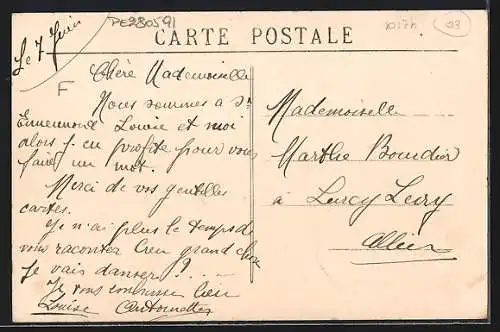 Le 7 Juin
PE280591
1017h
03
CARTE POSTALE
F
Chère Mademoiselle
Nous sommes à St
Ennemond Louise et moi
alors j'en profite pour vous
faire un mot.
Merci de vos gentilles
cartes.
Je n'ai plus le temps de
vous raconter bien grand chose
Je vais danser ! ? ...
Je vous embrasse bien
Louise Antoinette
Mademoiselle
Marthe Bourdier
à Lurcy Levy
Allier